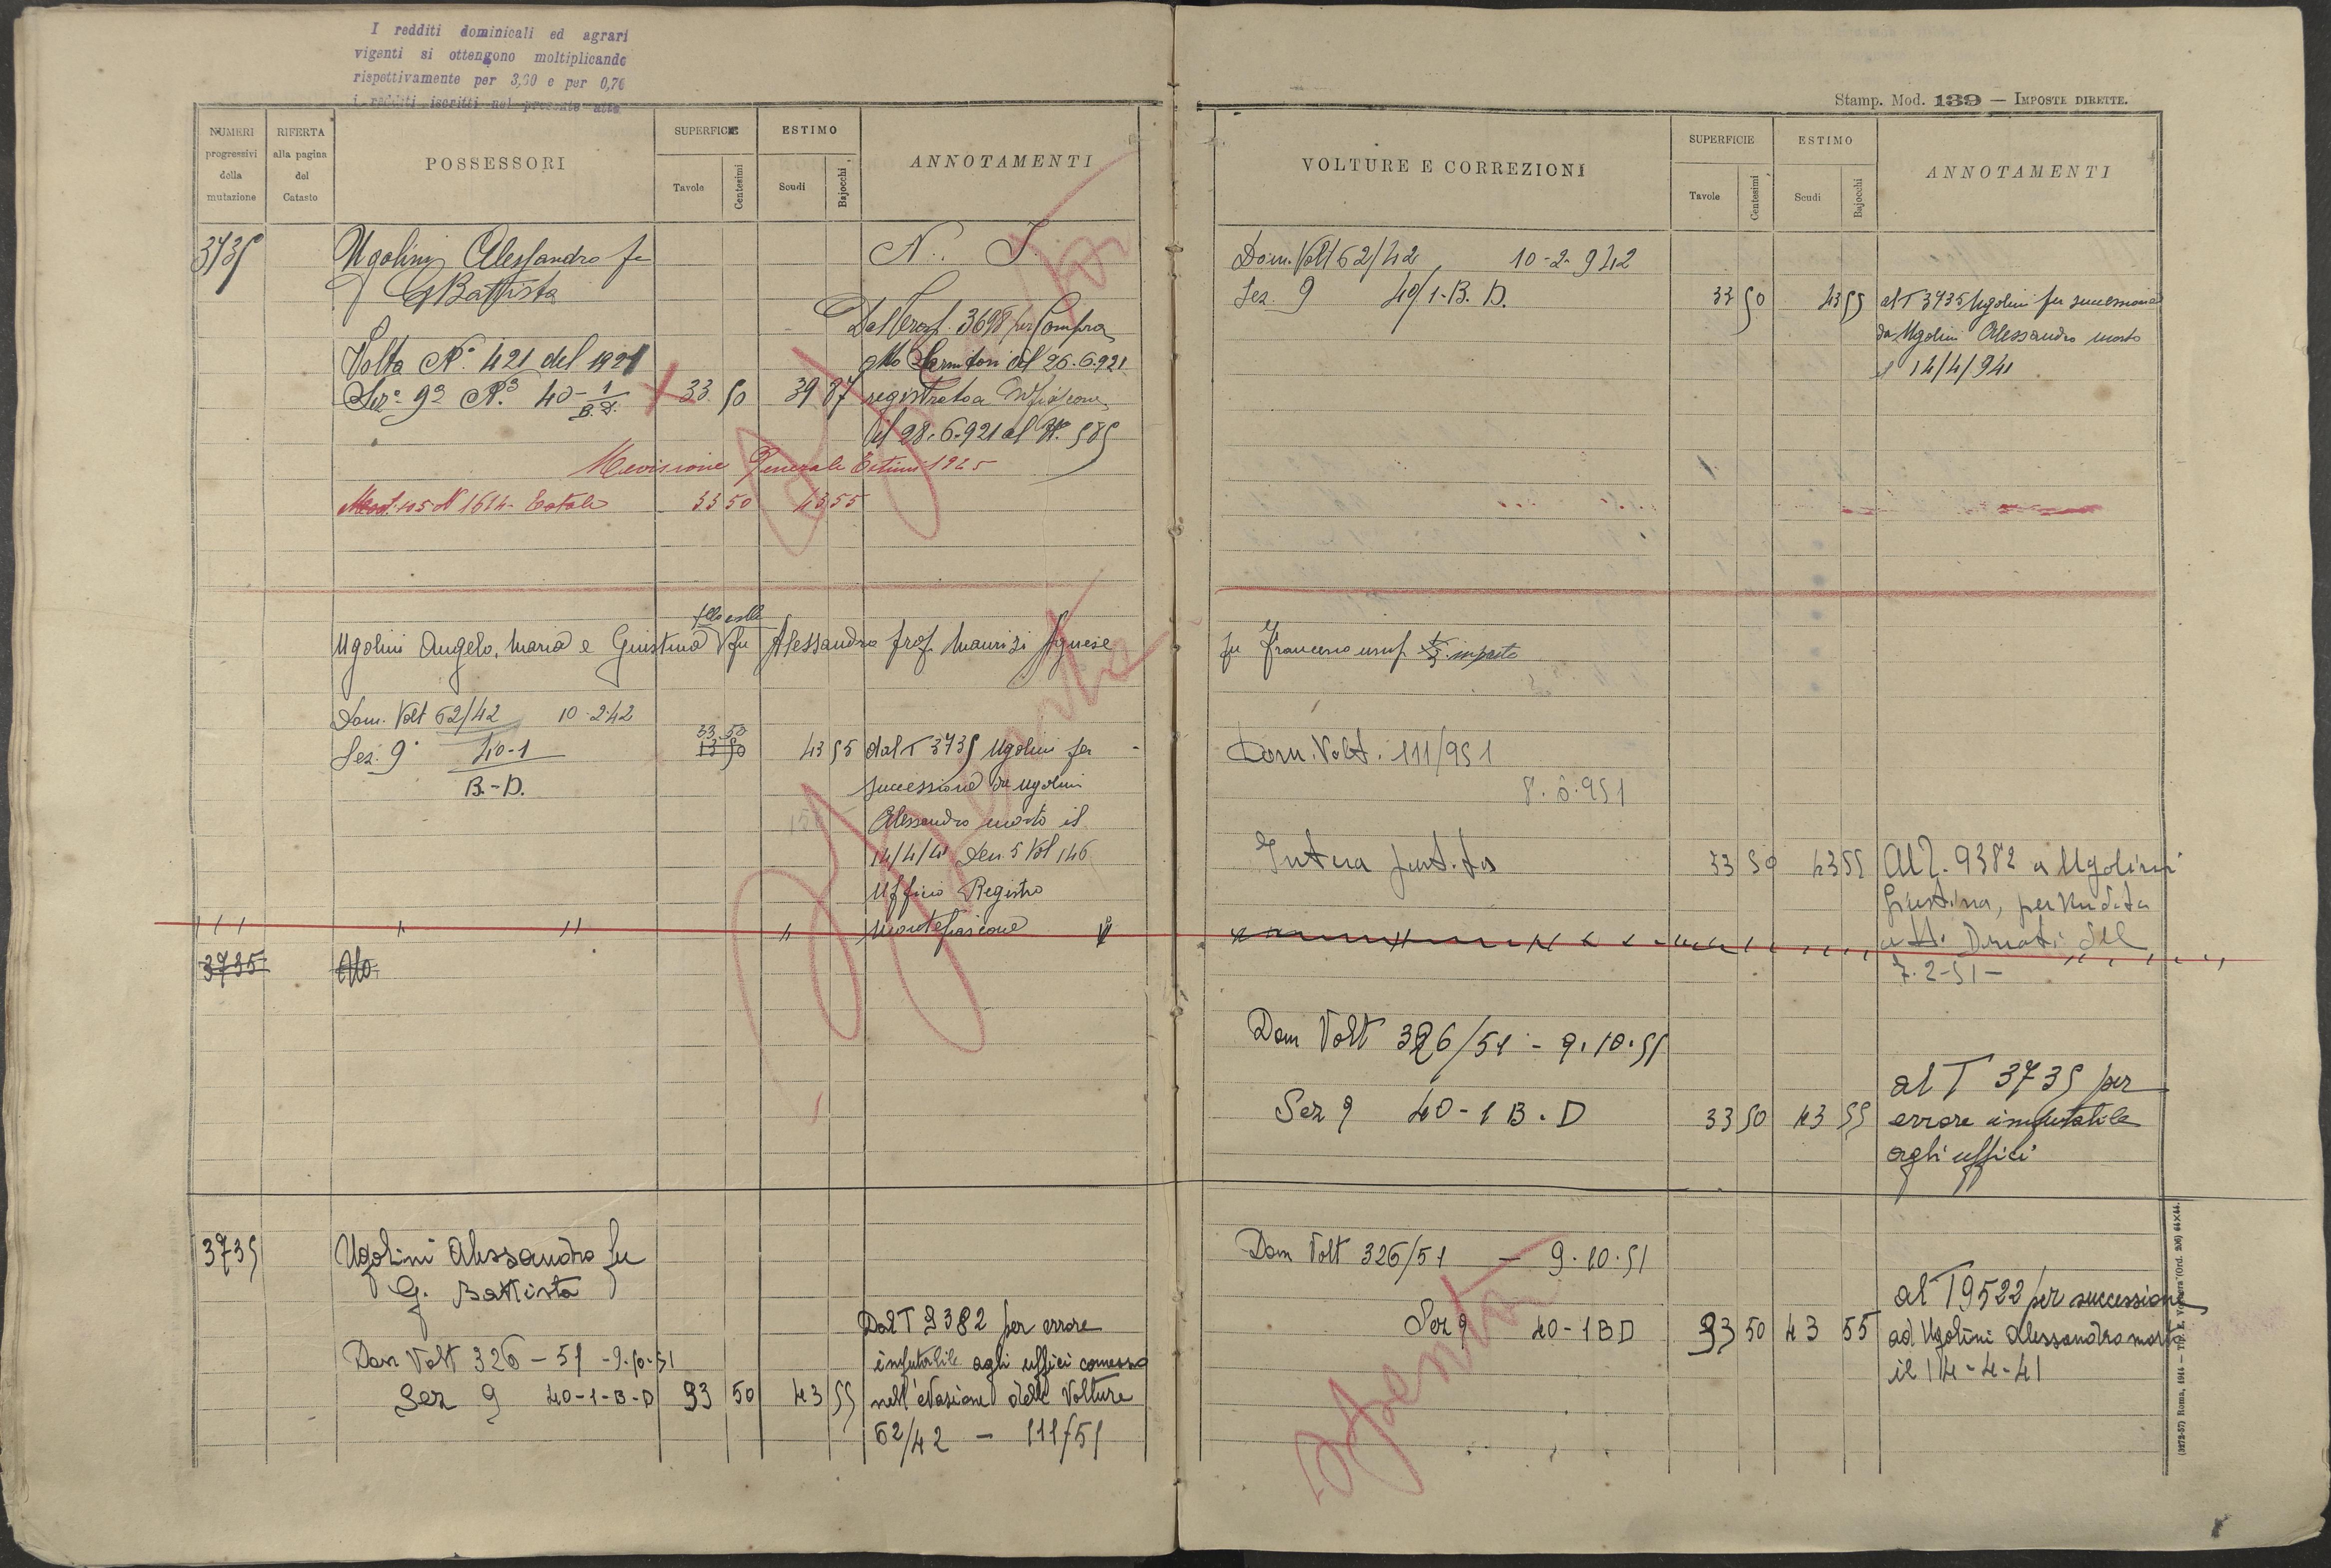 I redditi dominicali ed agrari
vigenti si ottengono moltiplicando
rispettivamente per 3,60 e per 0,76
i redditi iscritti nel presente atto
NUMERI progressivi della mutazione
RIFERTA alla pagina del Catasto
POSSESSORI
SUPERFICIE
Tavole
Centesimi
ESTIMO
Scudi
Bajocchi
ANNOTAMENTI
3735
Ugolini Alessandro fu
GBattista
N. I.
Dal 3698 per Compra
Volta N.° 421 del 1921
atto del 26.6.921
Sez.e 9a N.3 40-1/B.D.
33 50
39 87
registrato a Mfiascone
il 28.6.921 al N. 585
Revisione Generale Estimi 1925
Mod. 105 N 1614- Totale
33 50
43 55
Spenta
fllo e slle
Ugolini Angelo, Maria e Giustina V fu Alessandro prop. Maurizi Agnese
Dom. Volt 62/42 10-2-42
Sez. 9a 40-1
B.-D.
33.50
13 50
43 55
dal T 3735 Ugolini per
successione da Ugolini
Alessandro morto il
14/4/41 Den. 5 Vol 146
Ufficio Registro
Montefiascone
Spenta
3735
3735
Ugolini Alessandro fu
G. Battista
Dom Volt 326-51 -9-10-51
Sez 9 40-1-B-D
33 50
43 55
Dal T 9382 per errore
imputabile agli uffici comesso
nell'evasione delle Volture
62/42 - 111/51
Stamp. Mod. 139 — IMPOSTE DIRETTE.
VOLTURE E CORREZIONI
SUPERFICIE
Tavole
Centesimi
ESTIMO
Scudi
Bajocchi
ANNOTAMENTI
Dom. Volt 62/42 10-2-942
Sez. 9 40/1-B. D.
33 50
43 55
al T 3735 Ugolini per successione
da Ugolini Alessandro morto
il 14/4/941
fu Francesco usuf. in parte
Dom. Volt. 111/951
8.6.951
Intera part.ta
33 50
43 55
Al T. 9382 a Ugolini
Giustina, per Vendita
atto Donati del
7-2-51-
Dom Volt 326/51 - 9.10.51
Sez 9 40-1 B.D
33 50
43 55
al T 3735 per
errore imputabile
agli uffici
Dom Volt 326/51 - 9.10.51
Sez 9 40-1 BD
33 50
43 55
al T 9522 per successione
ad Ugolini Alessandro morto
il 14-4-41
Spenta
(3272-57) Roma, 1914 — Tip. E. Voghera (Ord. 206) 44×44.